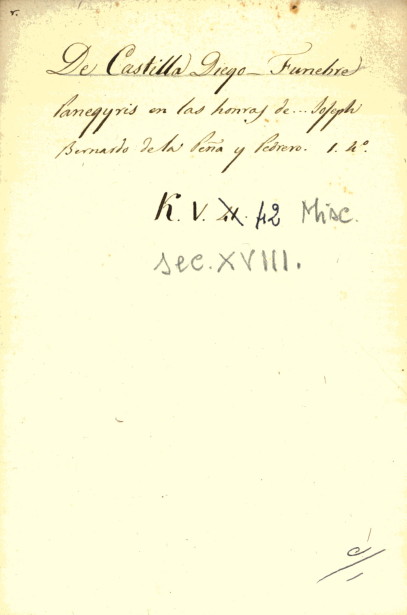 r.
De Castilla Diego - Funebre
Panegyris en las honras de... Joseph
Bernardo de la Peña y Pedrero. 1. 4º.
K. V. 42 Misc.
sec. XVIII.